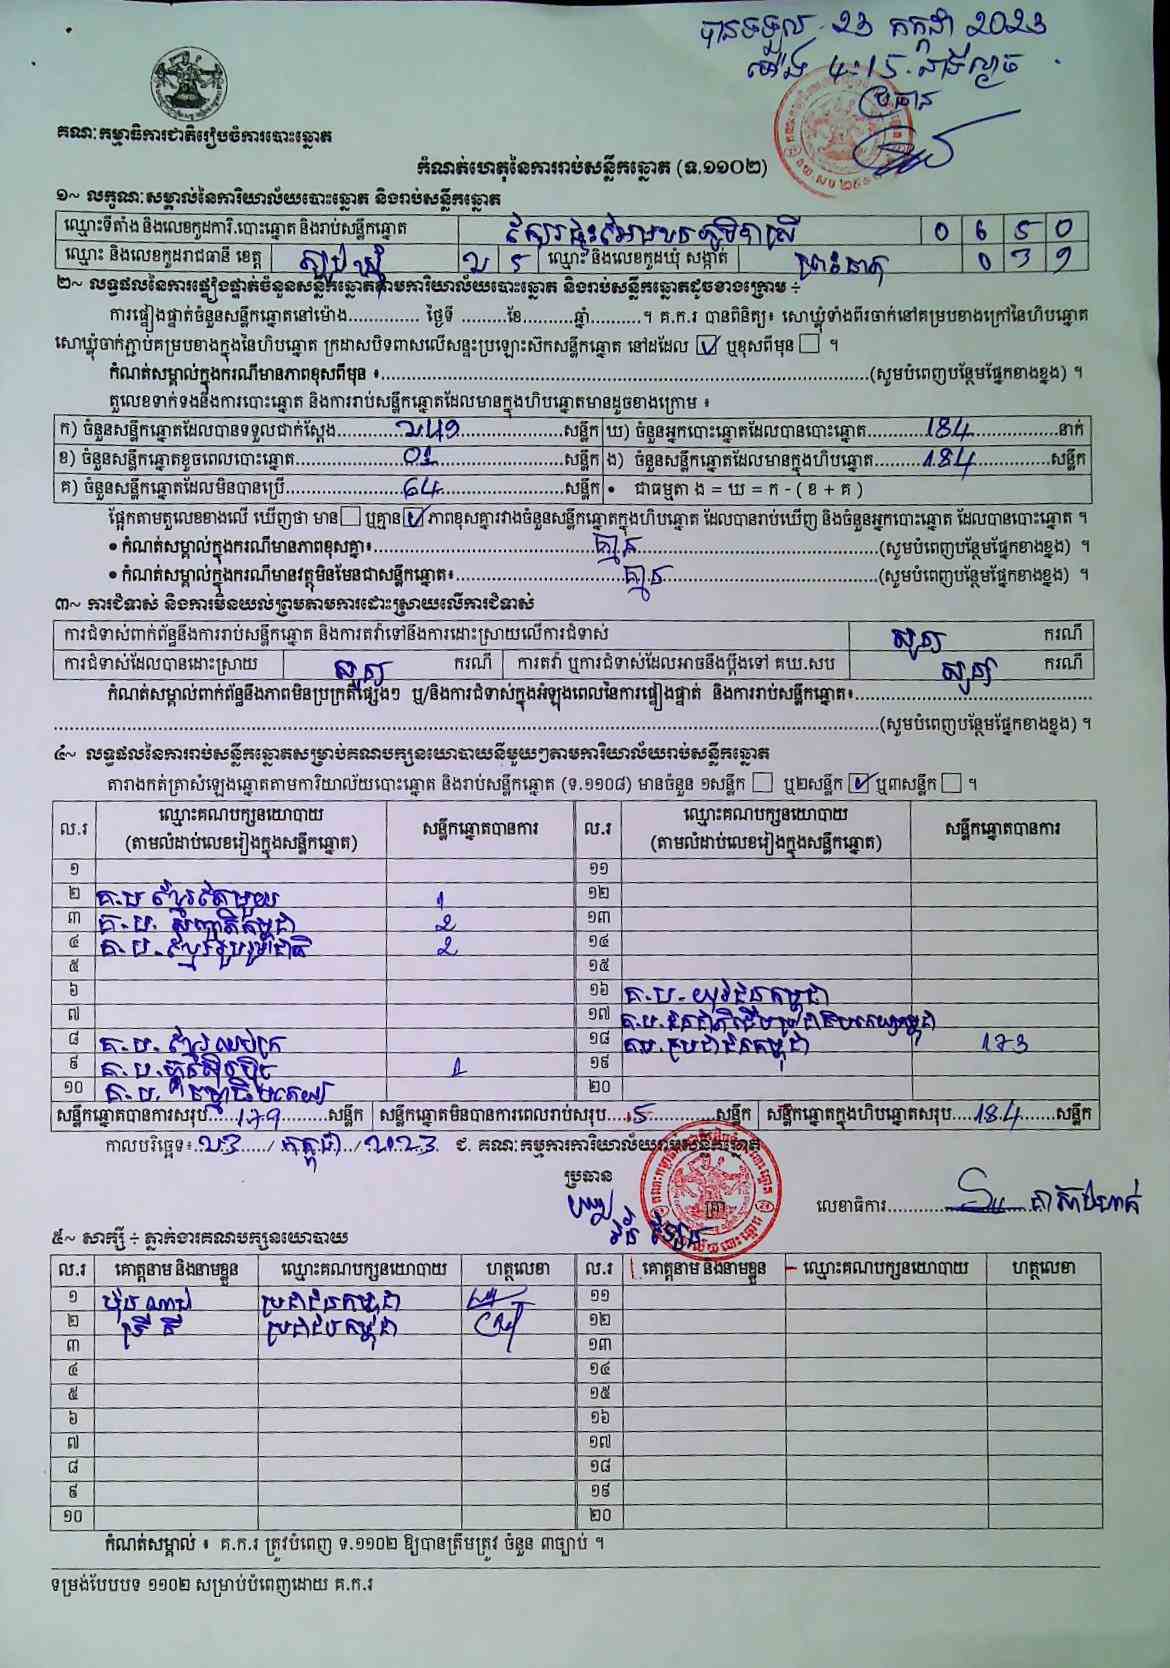 បានទទួល 23 កក្កដា 2023
ម៉ោង 4:15 នាទីល្ងាច
ប្រធាន
គណៈកម្មាធិការជាតិរៀបចំការបោះឆ្នោត
កំណត់ហេតុនៃការរាប់សន្លឹកឆ្នោត (ទ.១១០២)
១~ លក្ខណៈសម្គាល់នៃការិយាល័យបោះឆ្នោត និងរាប់សន្លឹកឆ្នោត
ឈ្មោះទីតាំង និងលេខកូដការិ.បោះឆ្នោត និងរាប់សន្លឹកឆ្នោត 0 6 5 0
ឈ្មោះ និងលេខកូដរាជធានី ខេត្ត ត្បូងឃ្មុំ ២ 5 ឈ្មោះ និងលេខកូដឃុំ សង្កាត់ ព្រះធាតុ 0 3 9
២~ លទ្ធផលនៃការផ្ទៀងផ្ទាត់ចំនួនសន្លឹកឆ្នោតតាមការិយាល័យបោះឆ្នោត និងរាប់សន្លឹកឆ្នោតដូចខាងក្រោម ÷
ការផ្ទៀងផ្ទាត់ចំនួនសន្លឹកឆ្នោតនៅម៉ោង.............. ថ្ងៃទី .........ខែ..........ឆ្នាំ..........។ គ.ក.រ បានពិនិត្យ៖ សោឃ្លុំទាំងពីរចាក់នៅគម្របខាងក្រៅនៃហិបឆ្នោត
សោឃ្លុំចាក់ភ្ជាប់គម្របខាងក្នុងនៃហិបឆ្នោត ក្រដាសបិទពាសលើសន្ទះប្រឡោះស៊កសន្លឹកឆ្នោត នៅដដែល ☑ ឬខុសពីមុន ☐ ។
កំណត់សម្គាល់ក្នុងករណីមានភាពខុសពីមុន ៖..........(សូមបំពេញបន្ថែមផ្នែកខាងខ្នង) ។
តួលេខទាក់ទងនឹងការបោះឆ្នោត និងការរាប់សន្លឹកឆ្នោតដែលមានក្នុងហិបឆ្នោតមានដូចខាងក្រោម ៖
ក) ចំនួនសន្លឹកឆ្នោតដែលបានទទួលជាក់ស្ដែង.....២49.....សន្លឹក ឃ) ចំនួនអ្នកបោះឆ្នោតដែលបានបោះឆ្នោត.....184.....នាក់
ខ) ចំនួនសន្លឹកឆ្នោតខូចពេលបោះឆ្នោត.....01.....សន្លឹក ង) ចំនួនសន្លឹកឆ្នោតដែលមានក្នុងហិបឆ្នោត.....184.....សន្លឹក
គ) ចំនួនសន្លឹកឆ្នោតដែលមិនបានប្រើ.....64.....សន្លឹក • ជាធម្មតា ង = ឃ = ក - ( ខ + គ )
ផ្អែកតាមតួលេខខាងលើ ឃើញថា មាន ☐ ឬគ្មាន ☑ ភាពខុសគ្នារវាងចំនួនសន្លឹកឆ្នោតក្នុងហិបឆ្នោត ដែលបានរាប់ឃើញ និងចំនួនអ្នកបោះឆ្នោត ដែលបានបោះឆ្នោត ។
• កំណត់សម្គាល់ក្នុងករណីមានភាពខុសគ្នា៖.....គ្មាន.....(សូមបំពេញបន្ថែមផ្នែកខាងខ្នង) ។
• កំណត់សម្គាល់ក្នុងករណីមានវត្ថុមិនមែនជាសន្លឹកឆ្នោត៖.....គ្មាន.....(សូមបំពេញបន្ថែមផ្នែកខាងខ្នង) ។
៣~ ការជំទាស់ និងការមិនយល់ព្រមតាមការដោះស្រាយលើការជំទាស់
ការជំទាស់ពាក់ព័ន្ធនឹងការរាប់សន្លឹកឆ្នោត និងការតវ៉ាទៅនឹងការដោះស្រាយលើការជំទាស់ សូន្យ ករណី
ការជំទាស់ដែលបានដោះស្រាយ សូន្យ ករណី ការតវ៉ា ឬការជំទាស់ដែលអាចនឹងប្ដឹងទៅ គឃ.សប សូន្យ ករណី
កំណត់សម្គាល់ពាក់ព័ន្ធនឹងភាពមិនប្រក្រតីផ្សេងៗ ឬ/និងការជំទាស់ក្នុងអំឡុងពេលនៃការផ្ទៀងផ្ទាត់ និងការរាប់សន្លឹកឆ្នោត៖..........
..........(សូមបំពេញបន្ថែមផ្នែកខាងខ្នង) ។
៤~ លទ្ធផលនៃការរាប់សន្លឹកឆ្នោតសម្រាប់គណបក្សនយោបាយនីមួយៗតាមការិយាល័យរាប់សន្លឹកឆ្នោត
តារាងកត់ត្រាសំឡេងឆ្នោតតាមការិយាល័យបោះឆ្នោត និងរាប់សន្លឹកឆ្នោត (ទ.១១០៨) មានចំនួន ១សន្លឹក ☐ ឬ២សន្លឹក ☑ ឬ៣សន្លឹក ☐ ។
ល.រ ឈ្មោះគណបក្សនយោបាយ (តាមលំដាប់លេខរៀងក្នុងសន្លឹកឆ្នោត) សន្លឹកឆ្នោតបានការ ល.រ ឈ្មោះគណបក្សនយោបាយ (តាមលំដាប់លេខរៀងក្នុងសន្លឹកឆ្នោត) សន្លឹកឆ្នោតបានការ
១ ១១
២ គ.ប ខ្មែរតែមួយ 1 ១២
៣ គ.ប. សញ្ជាតិកម្ពុជា 2 ១៣
៤ គ.ប. ខ្មែររួបរួមជាតិ 2 ១៤
៥ ១៥
៦ ១៦ គ.ប. យុវជនកម្ពុជា
៧ ១៧ គ.ប.ជនជាតិដើមប្រជាធិបតេយ្យកម្ពុជា
៨ គ.ប. ខ្មែរឈប់ក្រ ១៨ គប.ប្រជាជនកម្ពុជា 173
៩ គ.ប.ហ៊្វុនស៊ិនប៉ិច 1 ១៩
១០ គ.ប. ធម្មាធិបតេយ្យ ២០
សន្លឹកឆ្នោតបានការសរុប....179....សន្លឹក សន្លឹកឆ្នោតមិនបានការពេលរាប់សរុប....5....សន្លឹក សន្លឹកឆ្នោតក្នុងហិបឆ្នោតសរុប....184....សន្លឹក
កាលបរិច្ឆេទ៖ ២3 / កក្កដា / ២០២3 ជ. គណៈកម្មការការិយាល័យរាប់សន្លឹកឆ្នោត
ប្រធាន
លេខាធិការ..........
៥~ សាក្សី ÷ ភ្នាក់ងារគណបក្សនយោបាយ
ល.រ គោត្តនាម និងនាមខ្លួន ឈ្មោះគណបក្សនយោបាយ ហត្ថលេខា ល.រ គោត្តនាម និងនាមខ្លួន ឈ្មោះគណបក្សនយោបាយ ហត្ថលេខា
១ ប្រជាជនកម្ពុជា ១១
២ ប្រជាជនកម្ពុជា ១២
៣ ១៣
៤ ១៤
៥ ១៥
៦ ១៦
៧ ១៧
៨ ១៨
៩ ១៩
១០ ២០
កំណត់សម្គាល់ ៖ គ.ក.រ ត្រូវបំពេញ ទ.១១០២ ឱ្យបានត្រឹមត្រូវ ចំនួន ៣ច្បាប់ ។
ទម្រង់បែបបទ ១១០២ សម្រាប់បំពេញដោយ គ.ក.រ